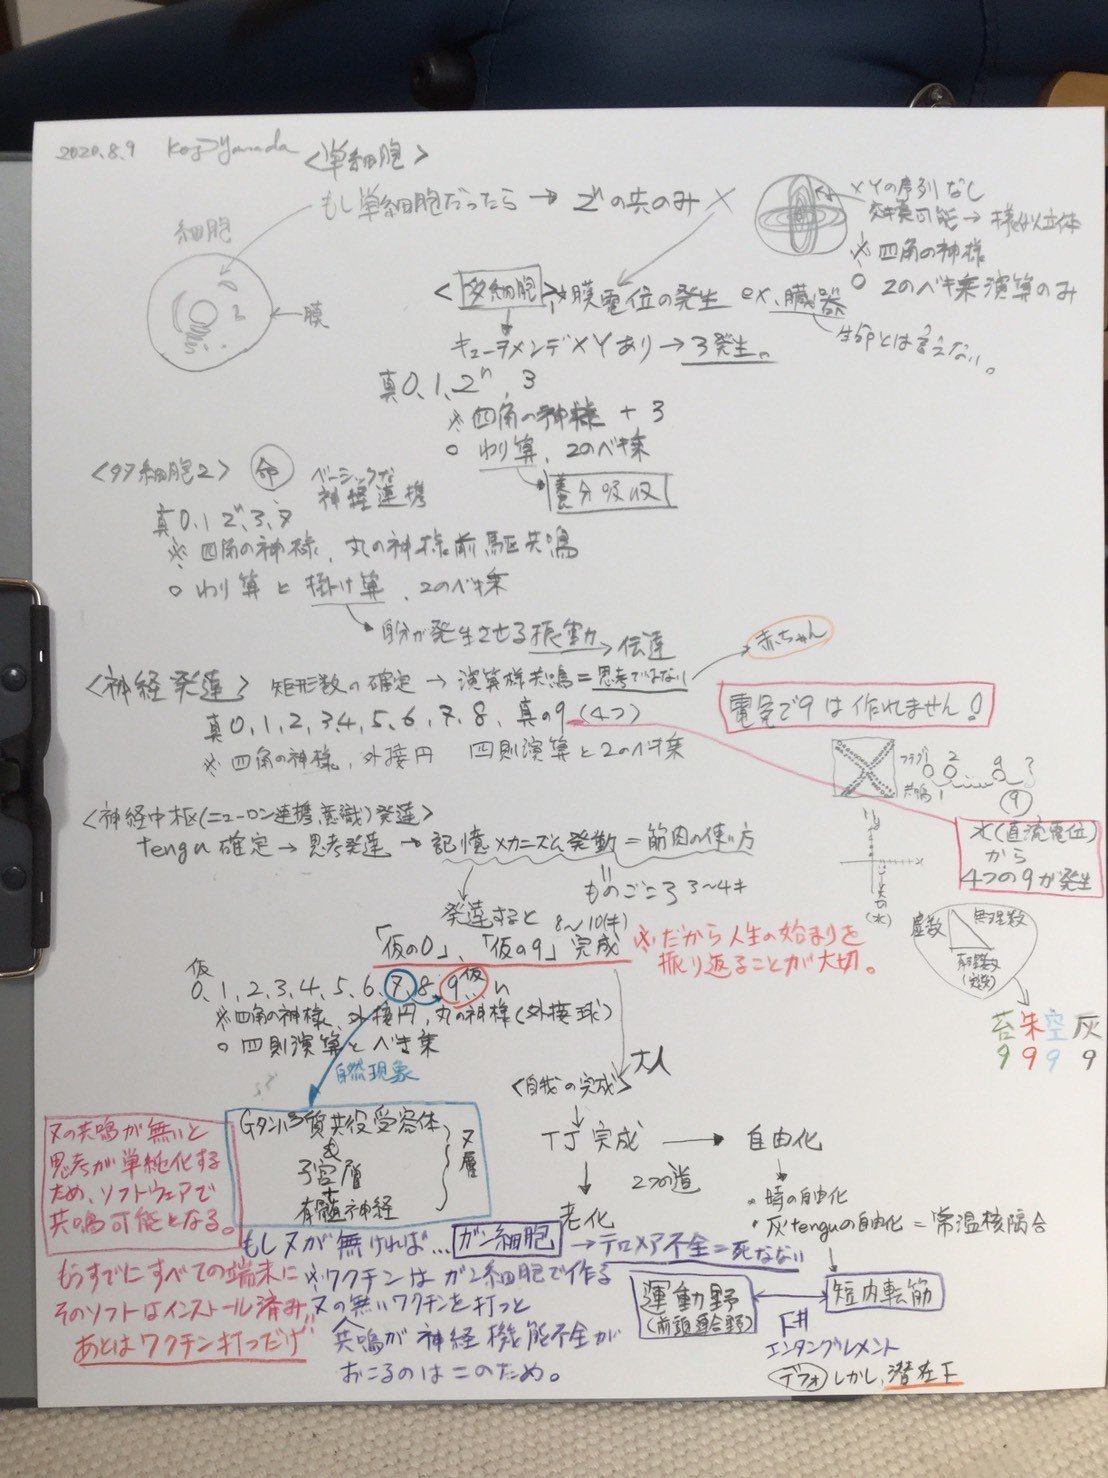 2020.8.9 Koji Yamada
<単細胞>
もし単細胞だったら→2ⁿの共のみ ×
XYの序列なし
交換可能→様似立体
※四角の神様
○2のべキ乗演算のみ
細胞
←膜
<多細胞>
膜電位の発生 ex,臓器
生命とは言えない。
XYあり→3発生。
真0,1,2ⁿ,3
※四角の神様+3
○わり算、2のベキ乗
養分吸収
<多細胞2> 命
ベーシックな
神経連携
真0,1 2ⁿ,3,7
※四角の神様、丸の神様前駆共鳴
○わり算と掛け算、2のベキ乗
自分が発生させる振動→伝達
赤ちゃん
<神経発達> 矩形数の確定→演算様共鳴=思考ではない
真0,1,2,3,4,5,6,7,8,真の9(4つ)
※四角の神様、外接円 四則演算と2のベキ乗
電気で9は作れません!
フラグ 1 2 9
共鳴 1
9
水(直流電位)
から
4つの9が発生
(水)
<神経中枢(ニューロン連携、意識)発達>
tengu確定→思考発達→記憶メカニズム発動=筋肉の使い方
ものごころ 3~4才
発達すると 8~10(才)
「仮の0」、「仮の9」完成
※だから人生の始まりを
振り返ることが大切。
虚数
無理数
有理数
(実数)
苔朱空灰
9 9 9 9
仮
0,1,2,3,4,5,6,7,8,9仮,n
※四角の神様、外接円、丸の神様(外接球)
○四則演算とべき乗
自然現象
大人
<自我の完成>
TJ完成→自由化
2つの道
老化
・時の自由化
・灰tenguの自由化=常温核融合
Gタンパク質共役受容体
子宮層
有髄神経
ヌ層
ヌの共鳴が無いと
思考が単純化する
ため、ソフトウェアで
共鳴可能となる。
もしヌが無ければ…ガン細胞→テロメア不全=死なない
もうすでにすべての端末に
そのソフトはインストール済み
あとはワクチン打つだけ!!
※ワクチンはガン細胞で作る
ヌの無いワクチンを打つと
共鳴が神経機能不全が
おこるのはこのため。
運動野
(前頭連合野)
短内転筋
エンタングルメント
デフォ しかし、潜在下